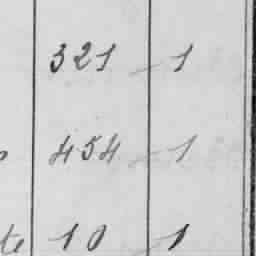 321 - 1
454 - 1
te 10 - 1